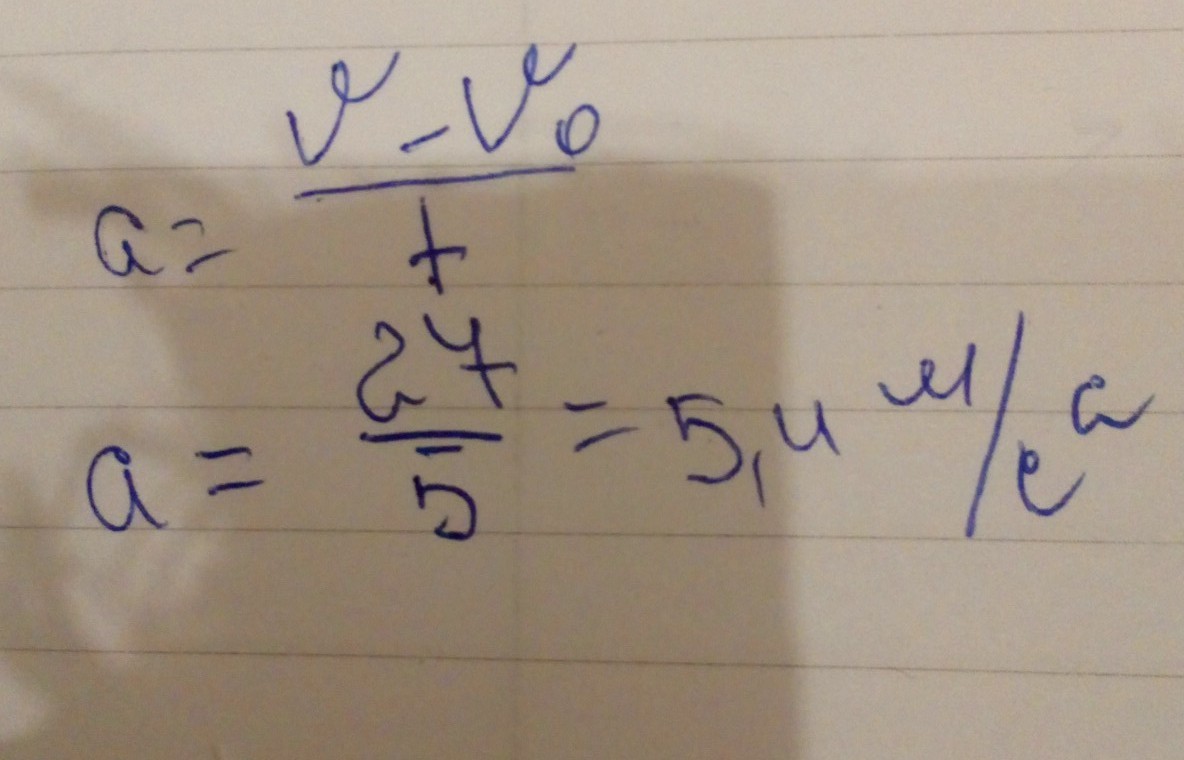 a = (v - v₀) / t
a = 27 / 5 = 5,4 м/с²